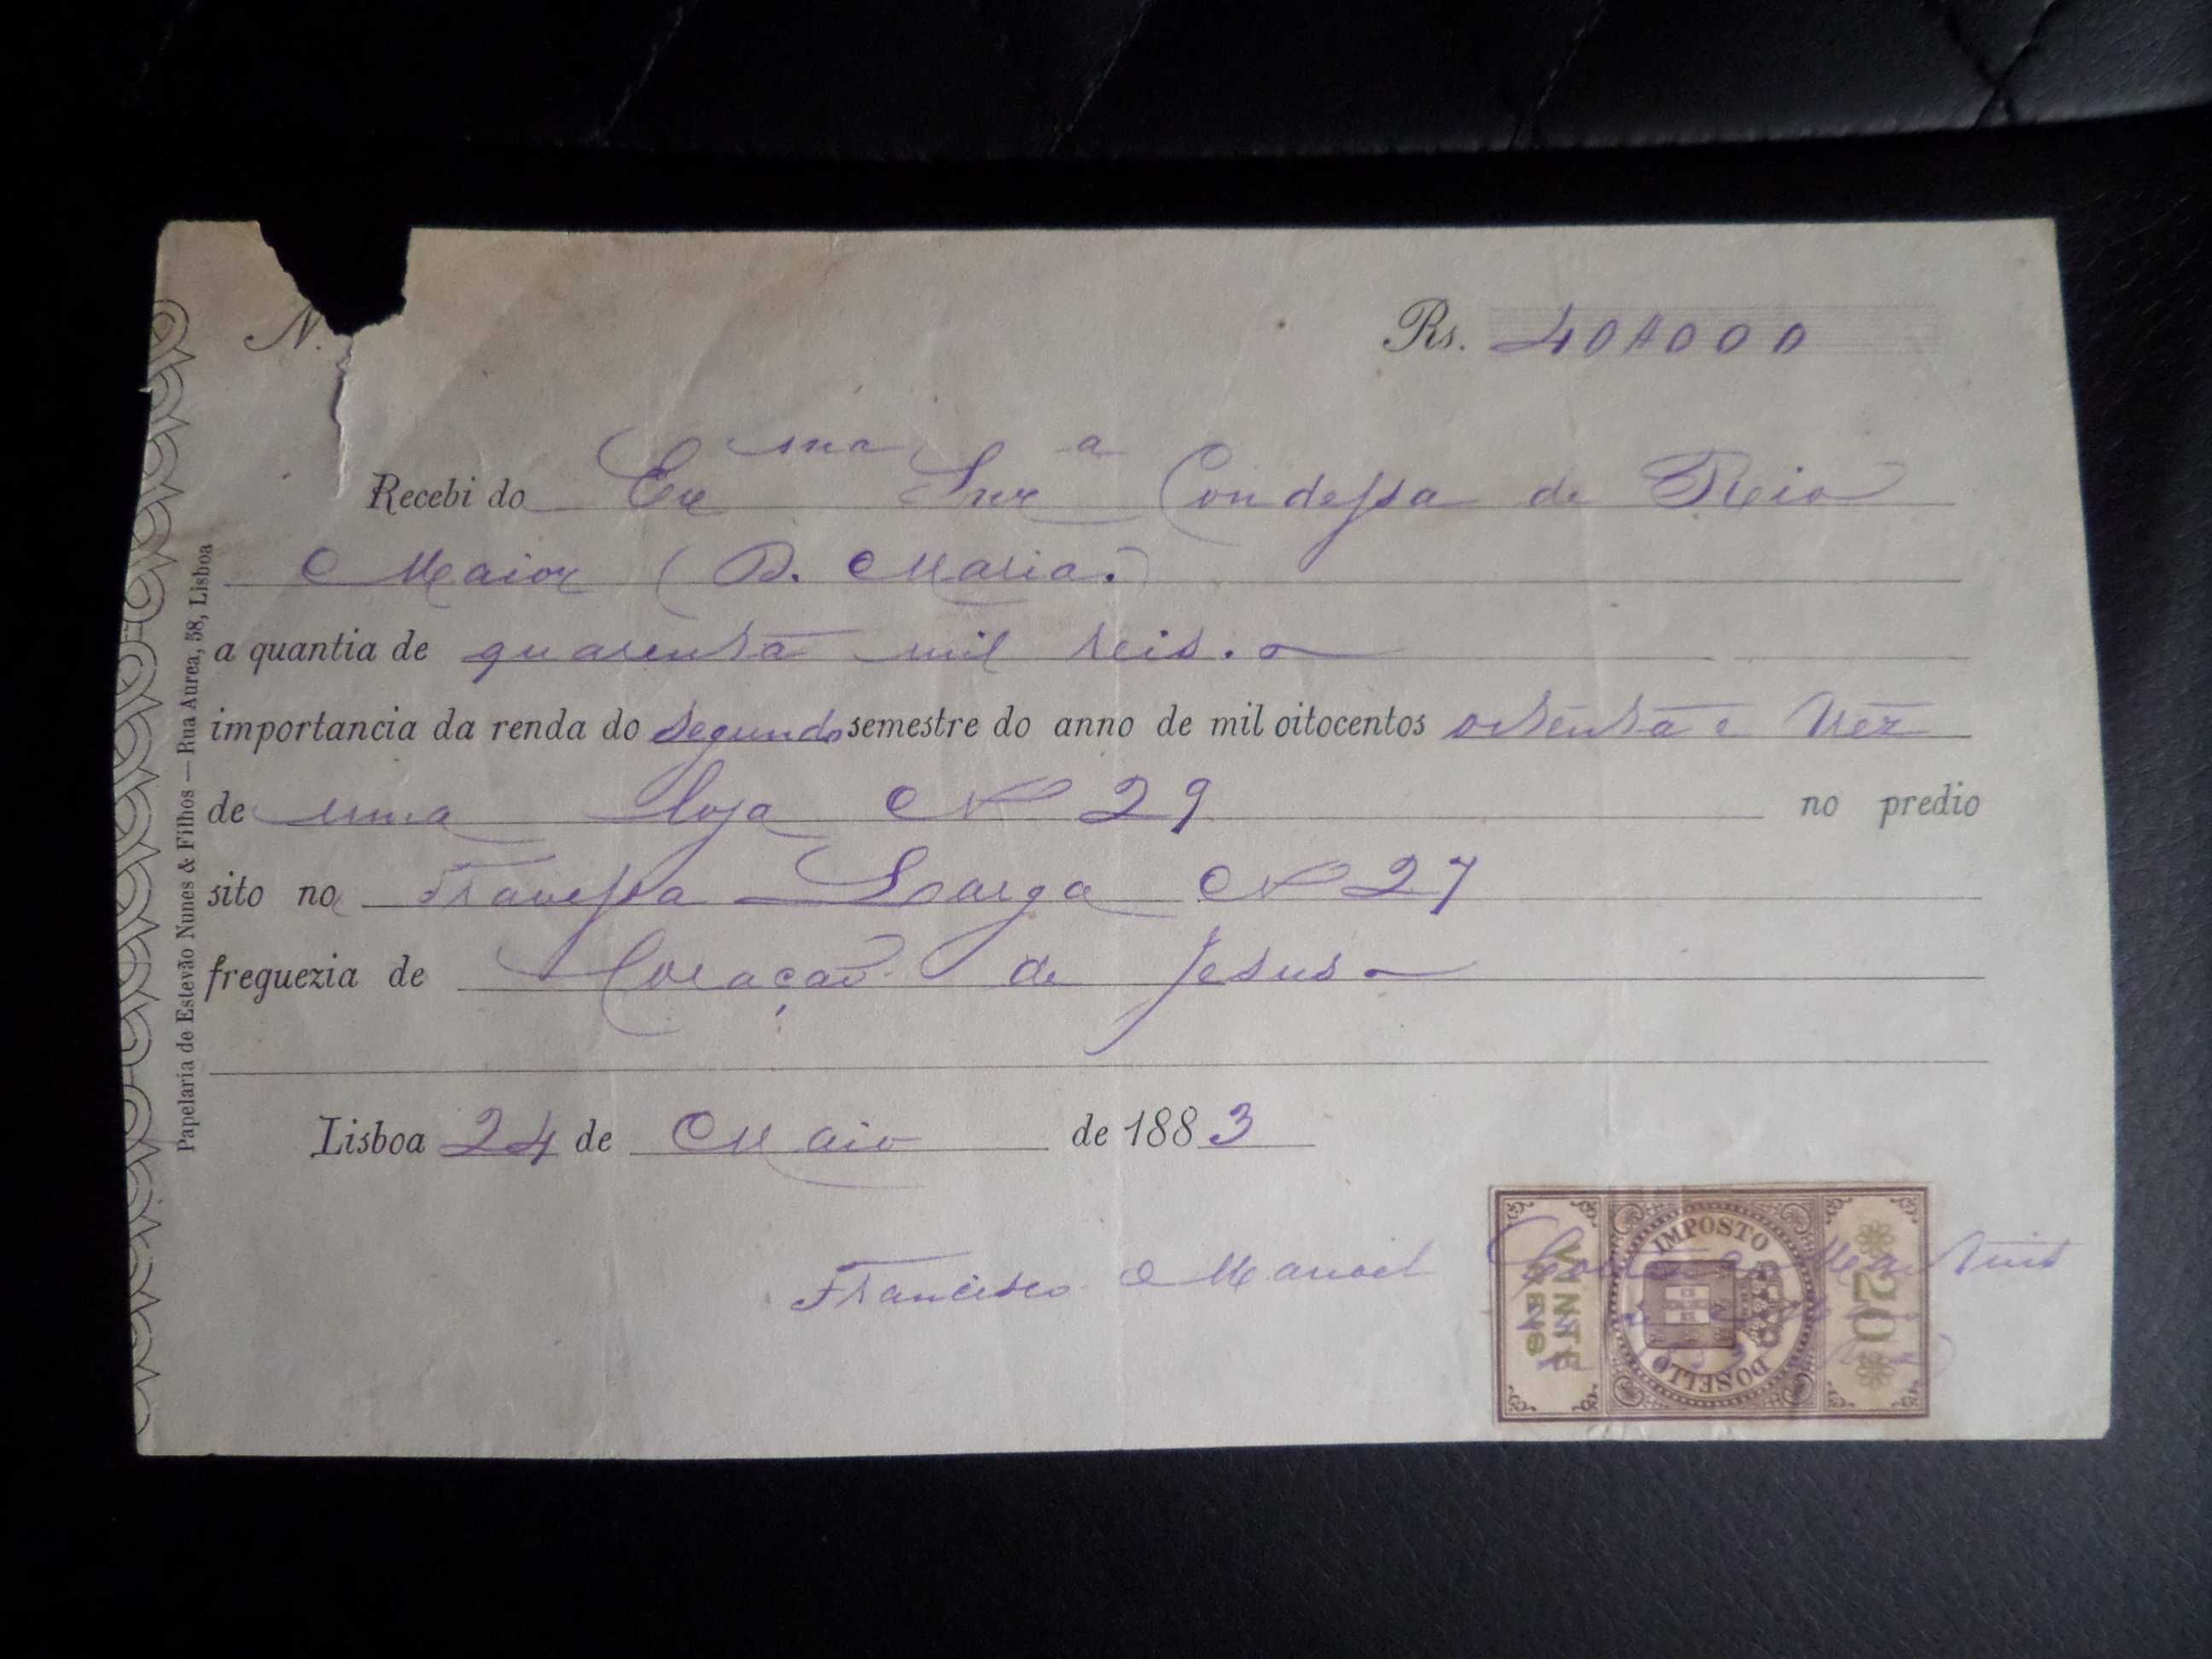 N.
Rs. 40$000
Recebi da Exma Snra Condessa de Rio
Maior (D. Maria.)
a quantia de quarenta mil reis.
importancia da renda do segundo semestre do anno de mil oitocentos oitenta e trez
de uma loja No 29 no predio
sito na Travessa Larga No 27
freguezia de Coração de Jesus
Lisboa 24 de Maio de 1883
Francisco Manoel Martins
IMPOSTO DO SELLO
VINTE REIS
20
Papelaria de Estevão Nunes & Filhos — Rua Aurea, 58, Lisboa